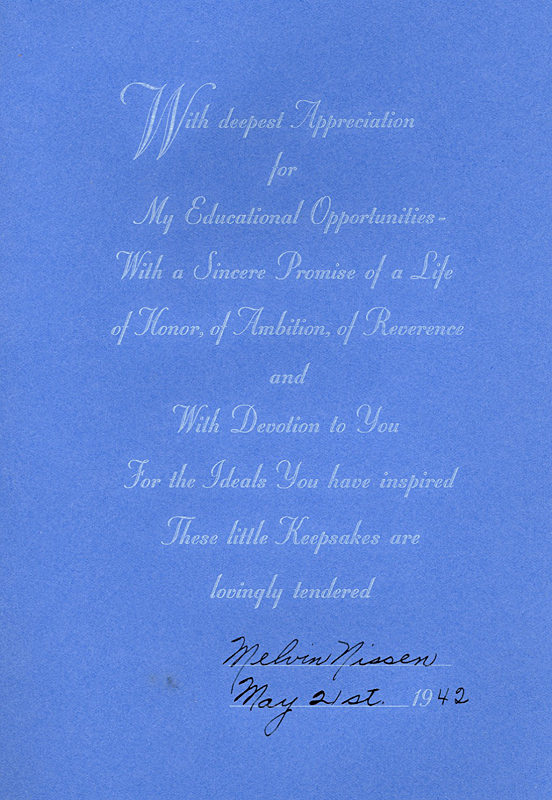 With deepest Appreciation
for
My Educational Opportunities-
With a Sincere Promise of a Life
of Honor, of Ambition, of Reverence
and
With Devotion to You
For the Ideals You have inspired
These little Keepsakes are
lovingly tendered
Melvin Nissen
May 21st. 1942